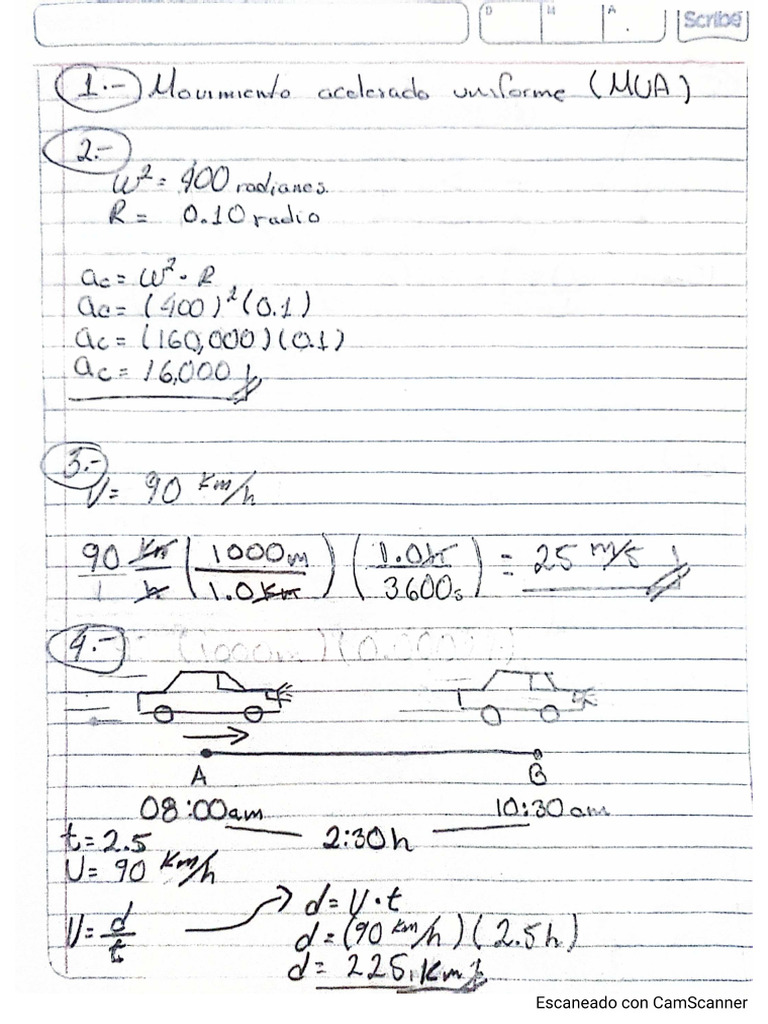 D M A Scribe
1.- Movimiento acelerado uniforme (MUA)
2.-
W² = 400 radianes.
R = 0.10 radio
ac = W² · R
ac = (400)² (0.1)
ac = (160,000)(0.1)
ac = 16,000
3.-
V = 90 Km/h
90 Km/h (1000m/1.0Km) (1.0h/3600s) = 25 m/s
4.-
A B
08:00am 10:30am
2:30h
t = 2.5
V = 90 Km/h
V = d/t
d = V · t
d = (90 Km/h)(2.5h)
d = 225 Km
Escaneado con CamScanner